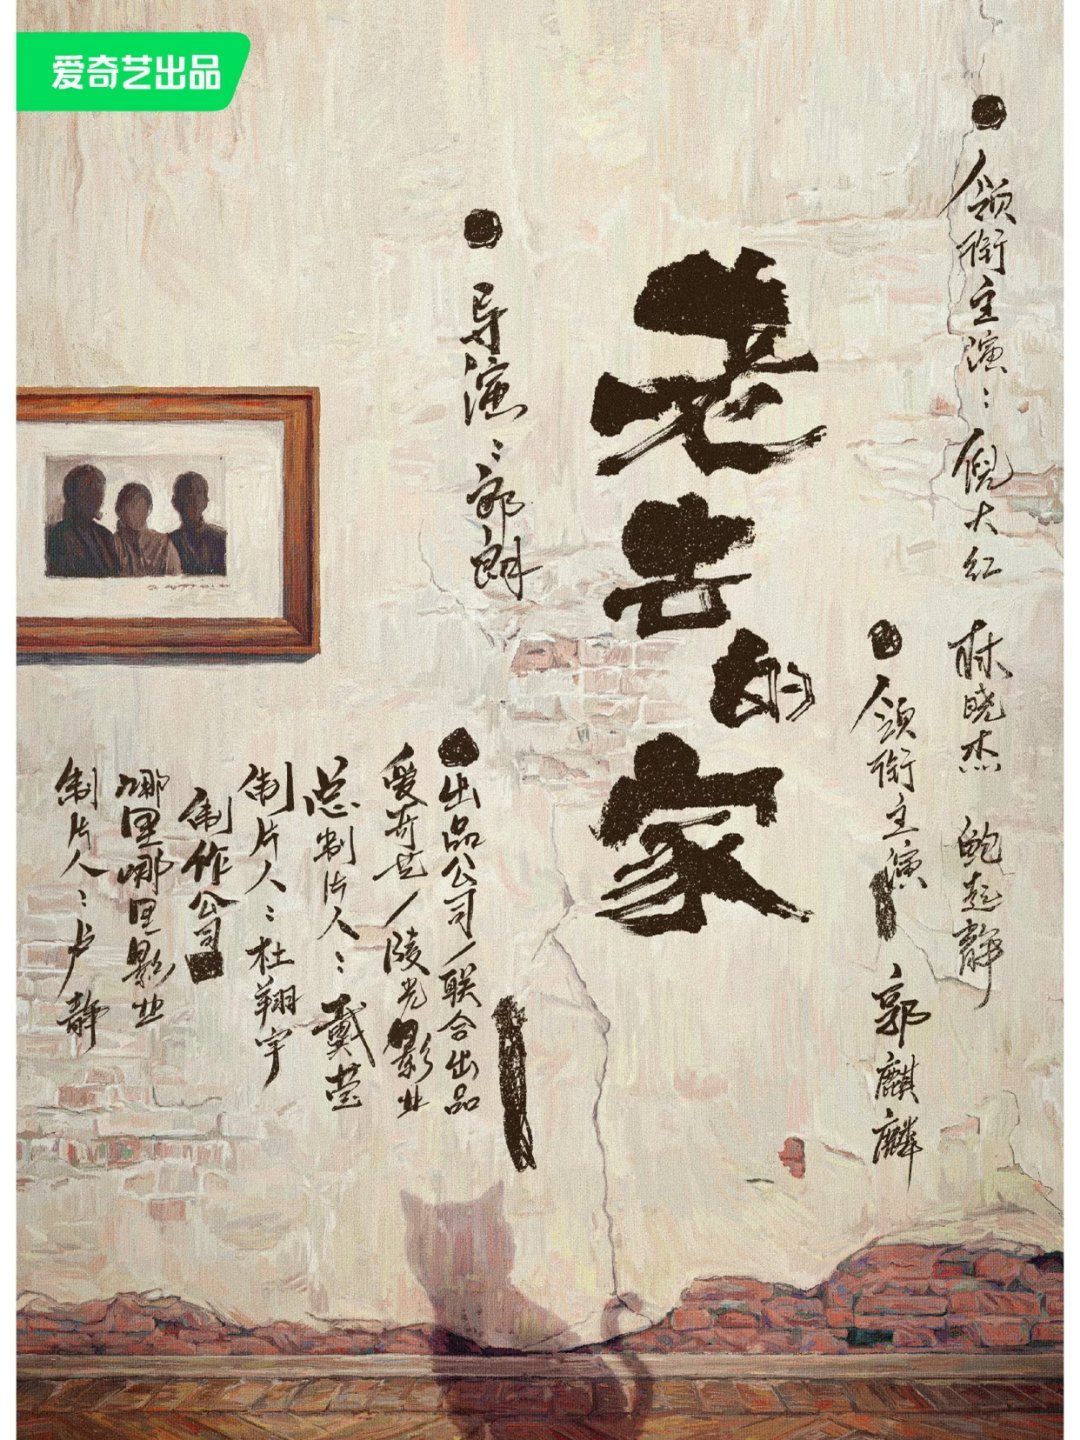 爱奇艺出品
领衔主演：倪大红 林晓杰 鲍起静
领衔主演 郭麒麟
老去的家
导演：郭朗
出品公司/联合出品
爱奇艺/陵光影业
总制片人：戴莹
制片人：杜翔宇
制作公司
哪里哪里影业
制片人：卢静